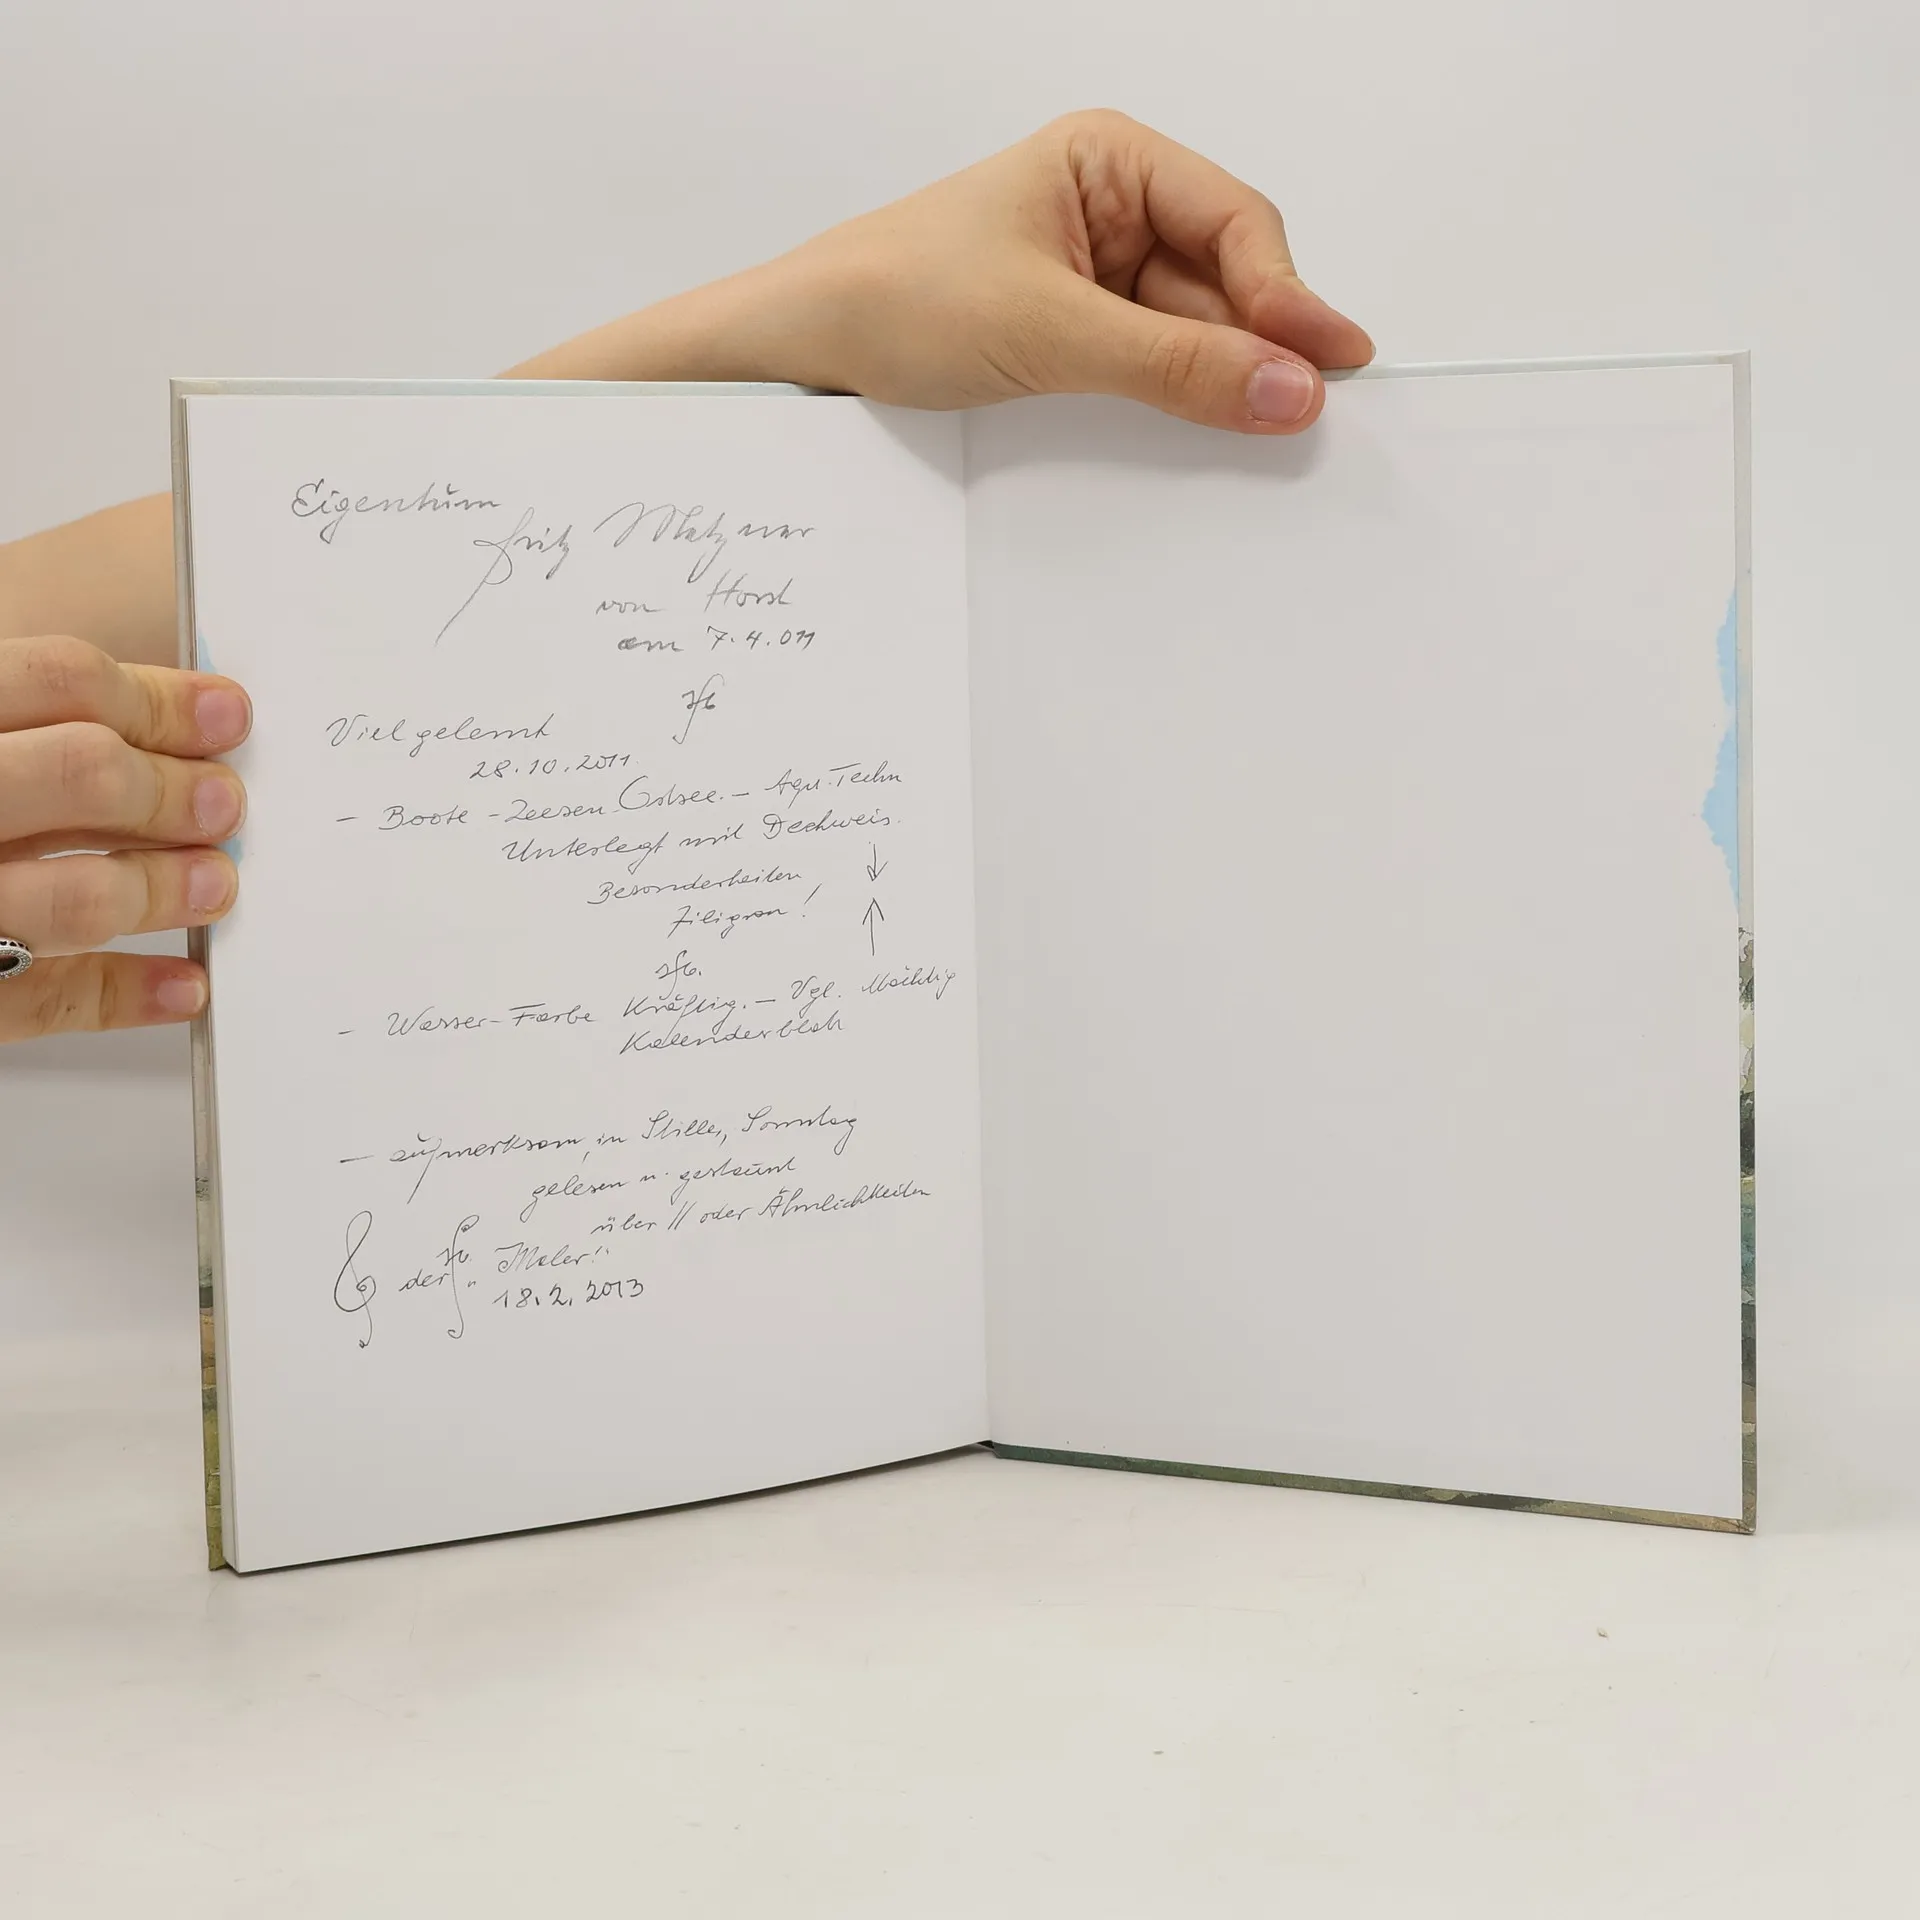 Eigentum
Fritz Metzner
von Horst
am 7.4.011
Viel gelernt
28.10.2011.
– Boote – Zeesen Ostsee. – Aqu. Techn
Unterlegt mit Deckweis.
Besonderheiten
Filigran!
– Wasser-Farbe Kräftig. – Vgl. Mächtig
Kalenderblatt
– aufmerksam, in Stille, Sonntag
gelesen u. gestaunt
über // oder Ähnlichkeiten
der „Maler“
18.2.2013